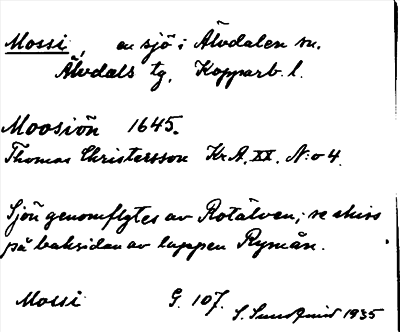 Mossi, en sjö i Älvdalen sn.
Älvdals tg, Kopparb. l.
Moosiön 1645.
Thomas Christersson Kr.A. XX. N:o 4.
Sjön genomflytes av Rotälven; se skiss
på baksidan av lappen Rymån.
Mossi G. 107.
S. Sundqvist 1935